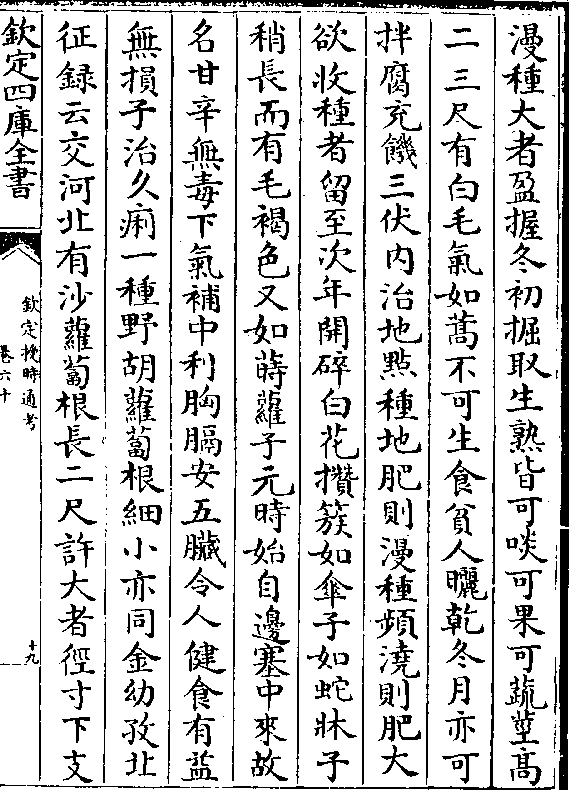 漫種大者盈握冬初掘取生熟皆可啖可果可蔬莖高
二三尺有白毛氣如蒿不可生食貧人曬乾冬月亦可
拌腐充饑三伏内治地㸃種地肥則漫種頻澆則肥大
欲收種者留至次年開碎白花攢簇如傘子如蛇牀子
稍長而有毛褐色又如蒔蘿子元時始自邊塞中來故
名甘辛無毒下氣補中利胸膈安五臟令人健食有益
無損子治久痢一種野胡蘿蔔根細小亦同金幼孜北
征録云交河北有沙蘿蔔根長二尺許大者徑寸下支
欽定四庫全書
欽定授時通考
卷六十
十九